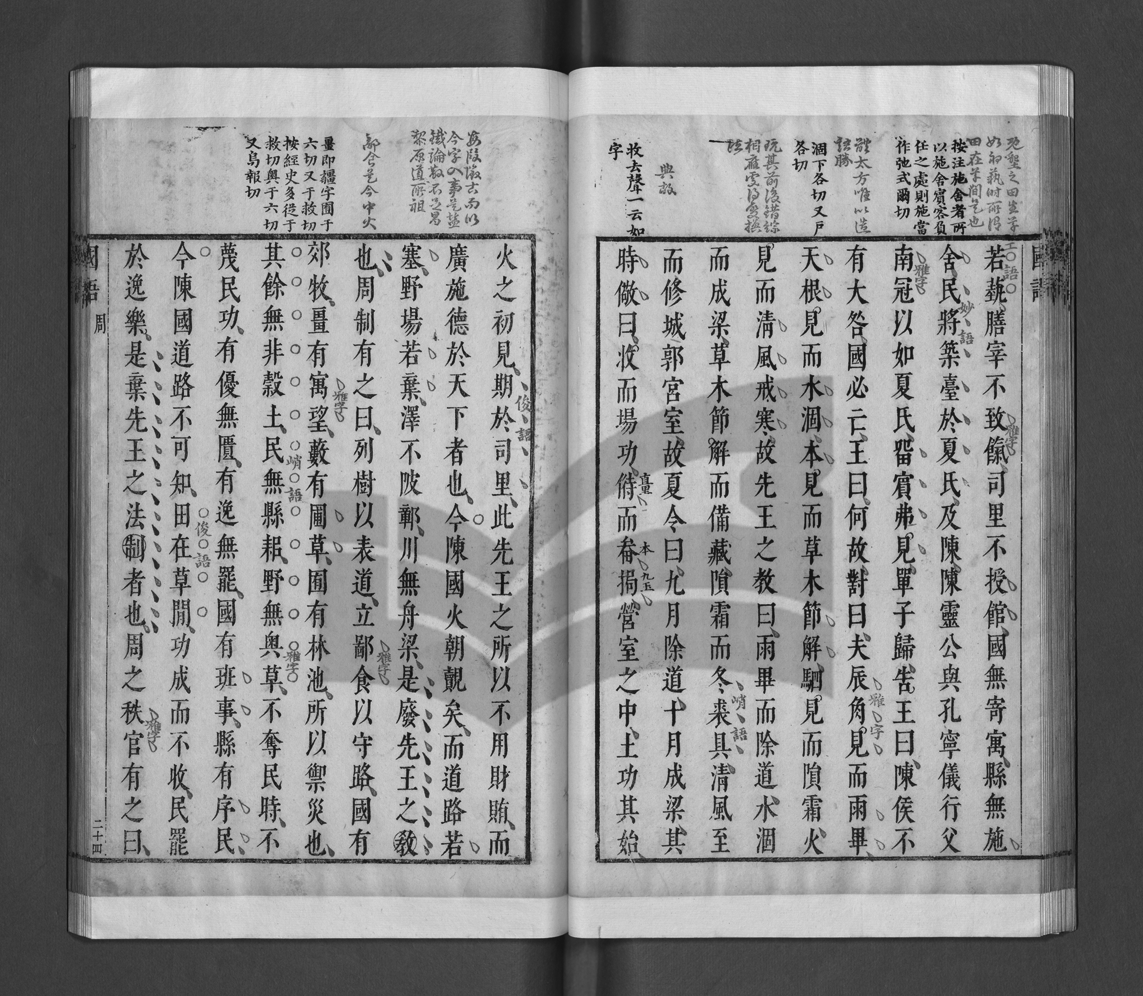 若蓺膳宰不致餼司里不授館國無寄寓縣無施
舍民將築臺於夏氏及陳陳靈公與孔寧儀行父
南冠以如夏氏留賓弗見單子歸告王曰陳侯不
有大咎國必亡王曰何故對曰夫辰角見而雨畢
天根見而水涸本見而草木節解駟見而隕霜火
見而清風戒寒故先王之教曰雨畢而除道水涸
而成梁草木節解而備藏隕霜而冬裘具清風至
而修城郭宮室故夏令曰九月除道十月成梁其
時儆曰收而場功偫而畚挶營室之中土功其始
按注施舍者所
以施舍賓客負
任之處則施當
作弛式爾切
涸下各切又戶
各切
收去聲一云如
字
典故
國語
妙語
俊語
雅字
峭語
火之初見期於司里此先王之所以不用財賄而
廣施德於天下者也今陳國火朝覿矣而道路若
塞野場若棄澤不陂鄣川無舟梁是廢先王之教
也周制有之曰列樹以表道立鄙食以守路國有
郊牧畺有寓望藪有圃草囿有林池所以禦災也
其餘無非穀土民無縣耜野無奧草不奪民時不
蔑民功有優無匱有逸無罷國有班事縣有序民
今陳國道路不可知田在草間功成而不收民罷
於逸樂是棄先王之法制者也周之秩官有之曰
畺即疆字囿于
六切又于救切
按經史多從于
救切奧于六切
又烏報切
國語
周
二十四